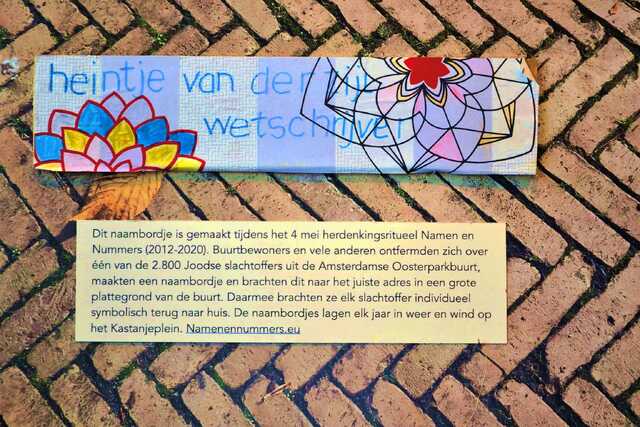 heintje van der
wetschrijver
Dit naambordje is gemaakt tijdens het 4 mei herdenkingsritueel Namen en
Nummers (2012-2020). Buurtbewoners en vele anderen ontfermden zich over
één van de 2.800 Joodse slachtoffers uit de Amsterdamse Oosterparkbuurt,
maakten een naambordje en brachten dit naar het juiste adres in een grote
plattegrond van de buurt. Daarmee brachten ze elk slachtoffer individueel
symbolisch terug naar huis. De naambordjes lagen elk jaar in weer en wind op
het Kastanjeplein. Namenennummers.eu